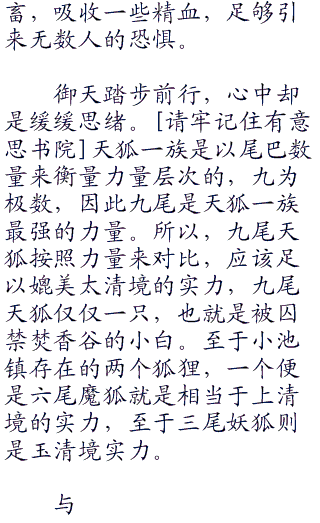 畜，吸收一些精血，足够引
来无数人的恐惧。
御天踏步前行，心中却
是缓缓思绪。[请牢记住有意
思书院]天狐一族是以尾巴数
量来衡量力量层次的，九为
极数，因此九尾是天狐一族
最强的力量。所以，九尾天
狐按照力量来对比，应该足
以媲美太清境的实力，九尾
天狐仅仅一只，也就是被囚
禁焚香谷的小白。至于小池
镇存在的两个狐狸，一个便
是六尾魔狐就是相当于上清
境的实力，至于三尾妖狐则
是玉清境实力。
与